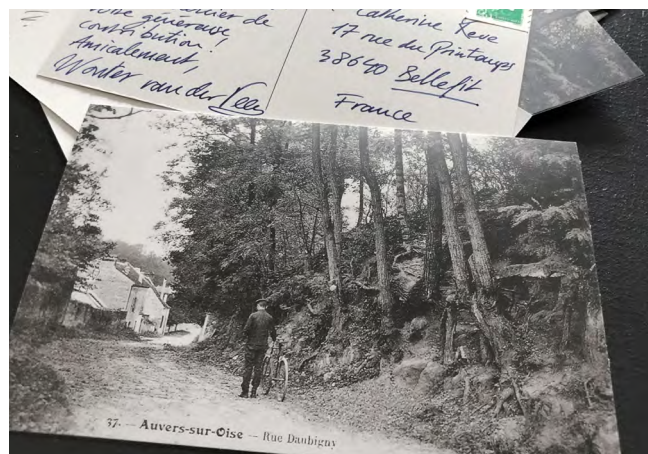 de
votre généreuse
contribution!
Amicalement,
Wouter van der Veen
Catherine
17 rue du Printemps
38640 Bellefit
France
37. — Auvers-sur-Oise — Rue Daubigny